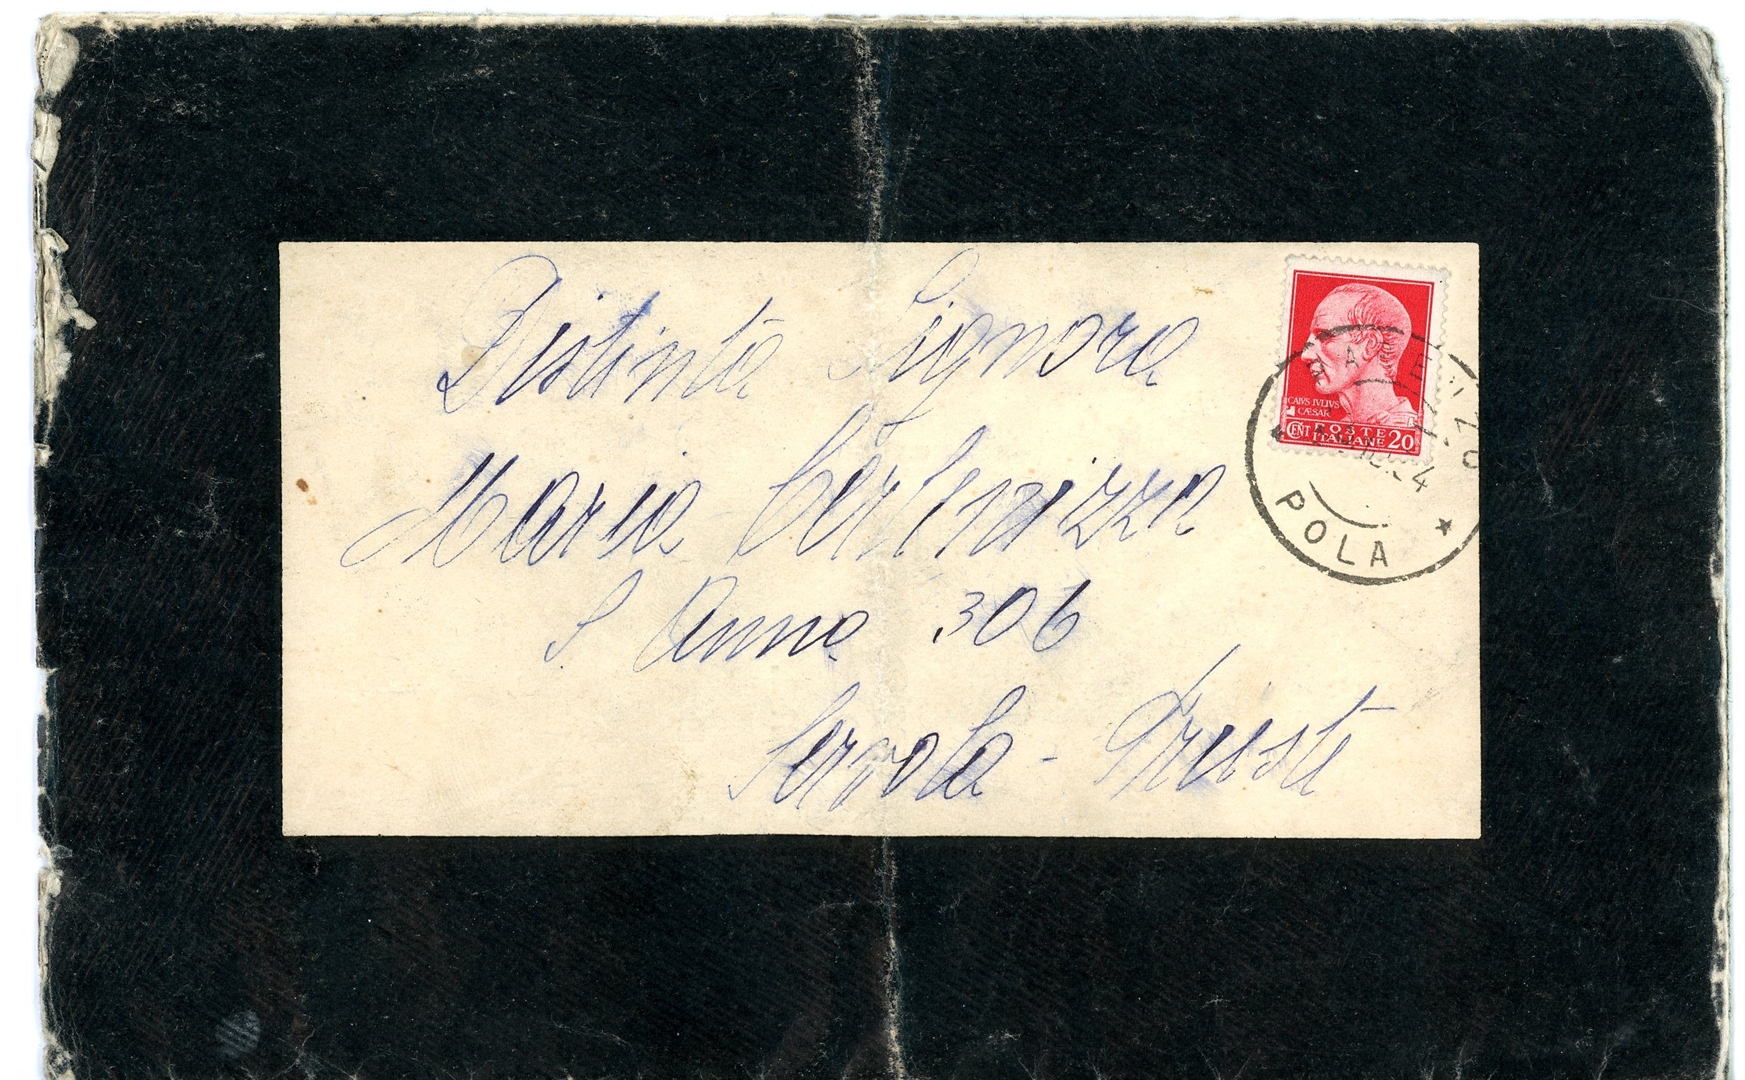 Distinta Signora
Maria
S Anna 306
Servola - Trieste
CAIVS IVLIVS
CÆSAR
CENT POSTE
ITALIANE 20
POLA